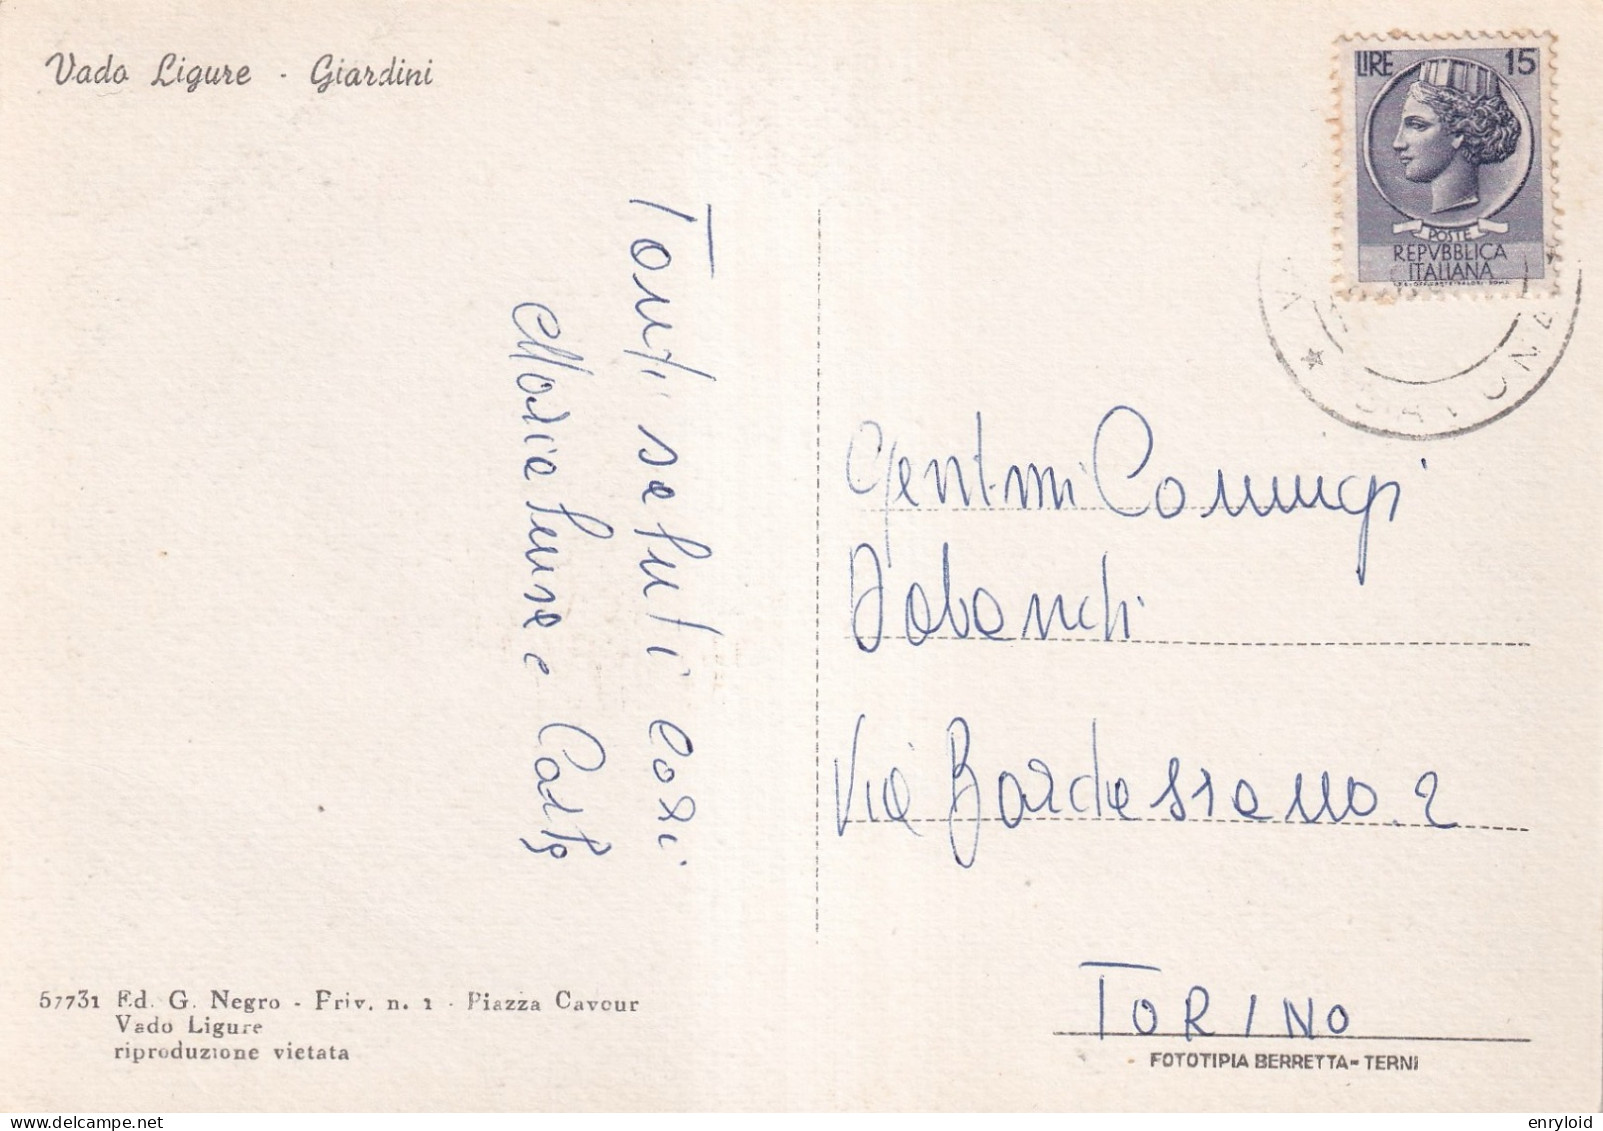 Vado Ligure - Giardini
LIRE 15
POSTE
REPVBBLICA
ITALIANA
Tanti saluti cari
Maria Luisa e
Gent.mi Coniugi
Via Bardassano 2
TORINO
57731 Ed. G. Negro - Priv. n. 1 - Piazza Cavour
Vado Ligure
riproduzione vietata
FOTOTIPIA BERRETTA - TERNI
enryloid
delcampe.net